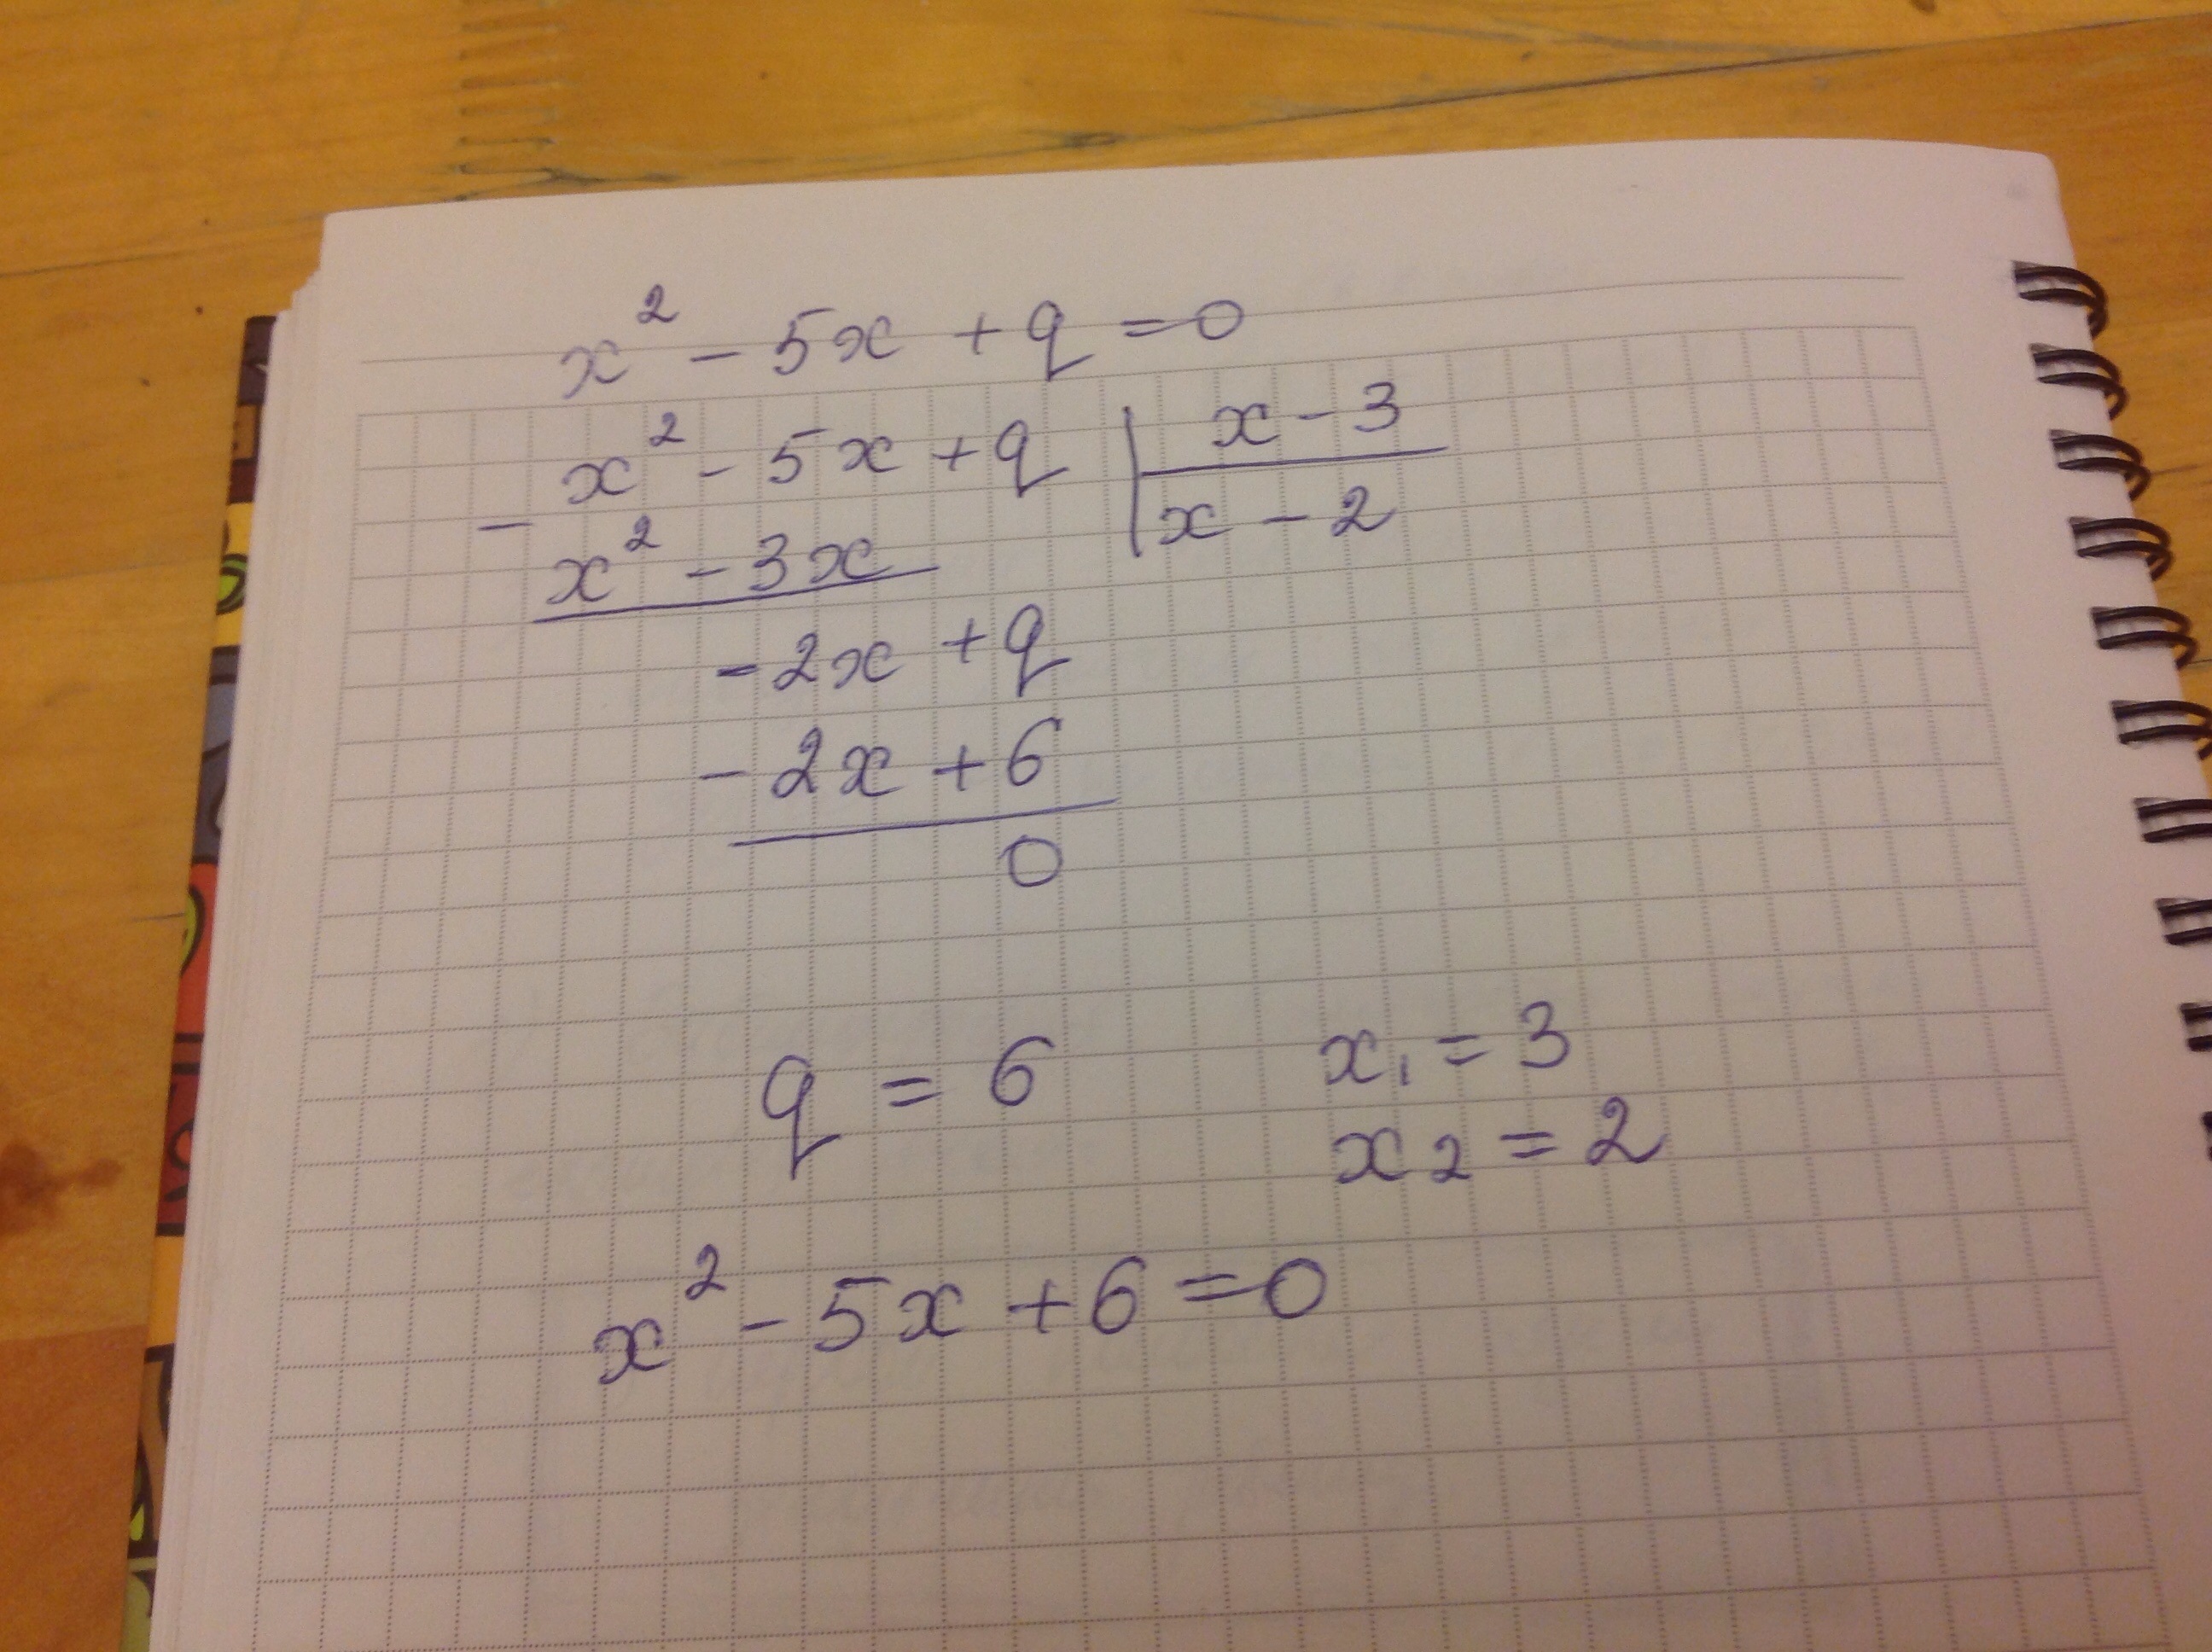 x² - 5x + q = 0
x² - 5x + q | x - 3
-
x² - 3x | x - 2
-2x + q
-2x + 6
0
q = 6 x₁ = 3
x₂ = 2
x² - 5x + 6 = 0